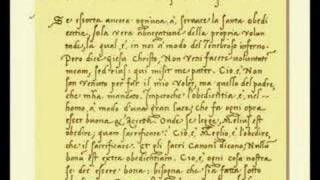 Si essorta ancora ogniuna, à, servare la santa obedi
entia, sola vera abnegatione della propria volun
tade, la qual è, in noi à modo del tenebroso inferno.
Pero dice Giesu Christo, Non veni facere voluntatē
meam, sed eius, qui misit me pater. Cio è, Non
son venuto per far il mio voler, ma quello del padre,
che m'ha mandato. Imperoche l'obedientia è, nel
homo, à modo d'una gran luce, che fa ogni opra
esser buona & accetta. Onde se legge, Melius est
obedire, quam sacrificare. Cio è, Meglio è, l'obedire,
che el sacrificare. Et gli sacri Canoni dicono, Nullū
bonū est extra obedientiam. Cio è, ogni cosa nostra
se de essere bona, bisogna che sia fatta sotto